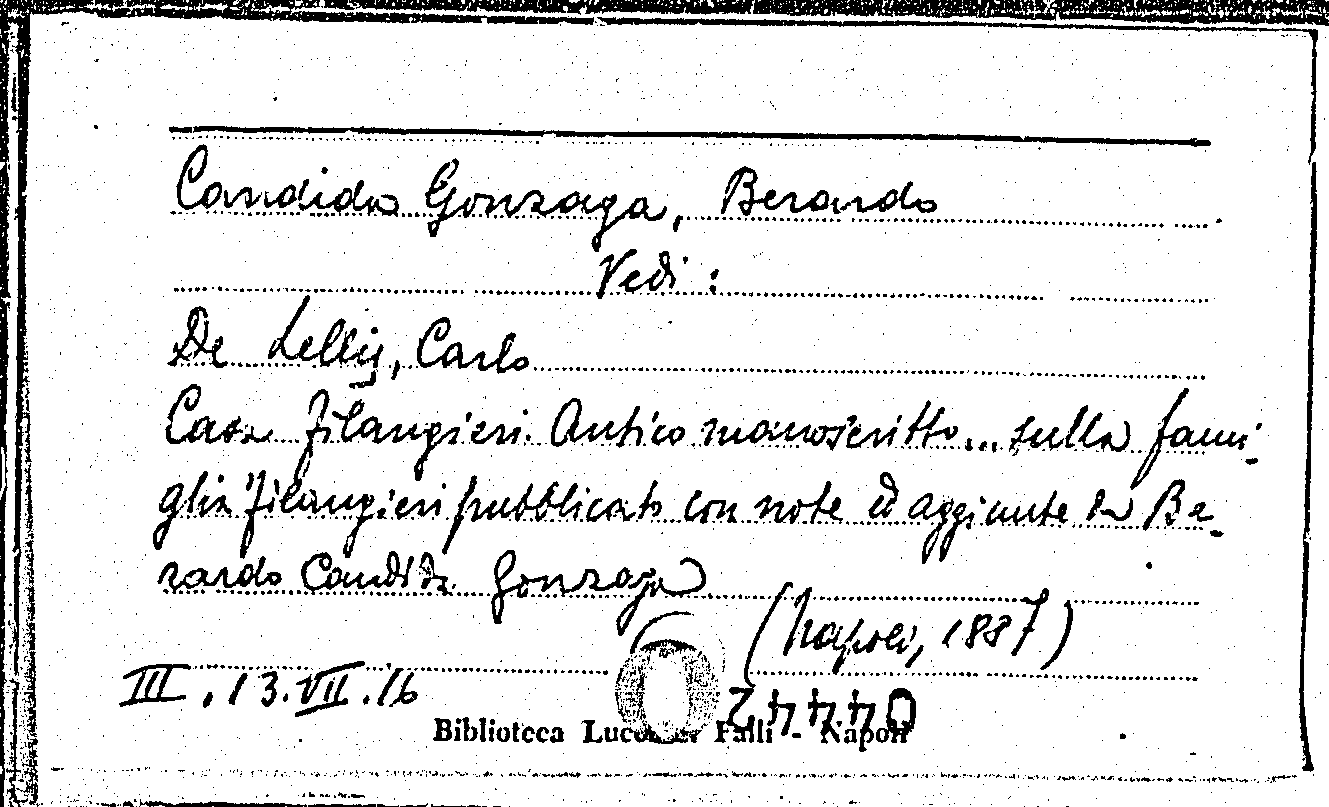 Candida Gonzaga, Berardo
Vedi :
De Lellis, Carlo
Casa Filangieri. Antico manoscritto... sulla fami-
glia Filangieri pubblicato con note ed aggiunte da Be-
rardo Candida Gonzaga
(Napoli, 1887)
III . 13. VII . 16
04442
Biblioteca Luc Palli - Napoli